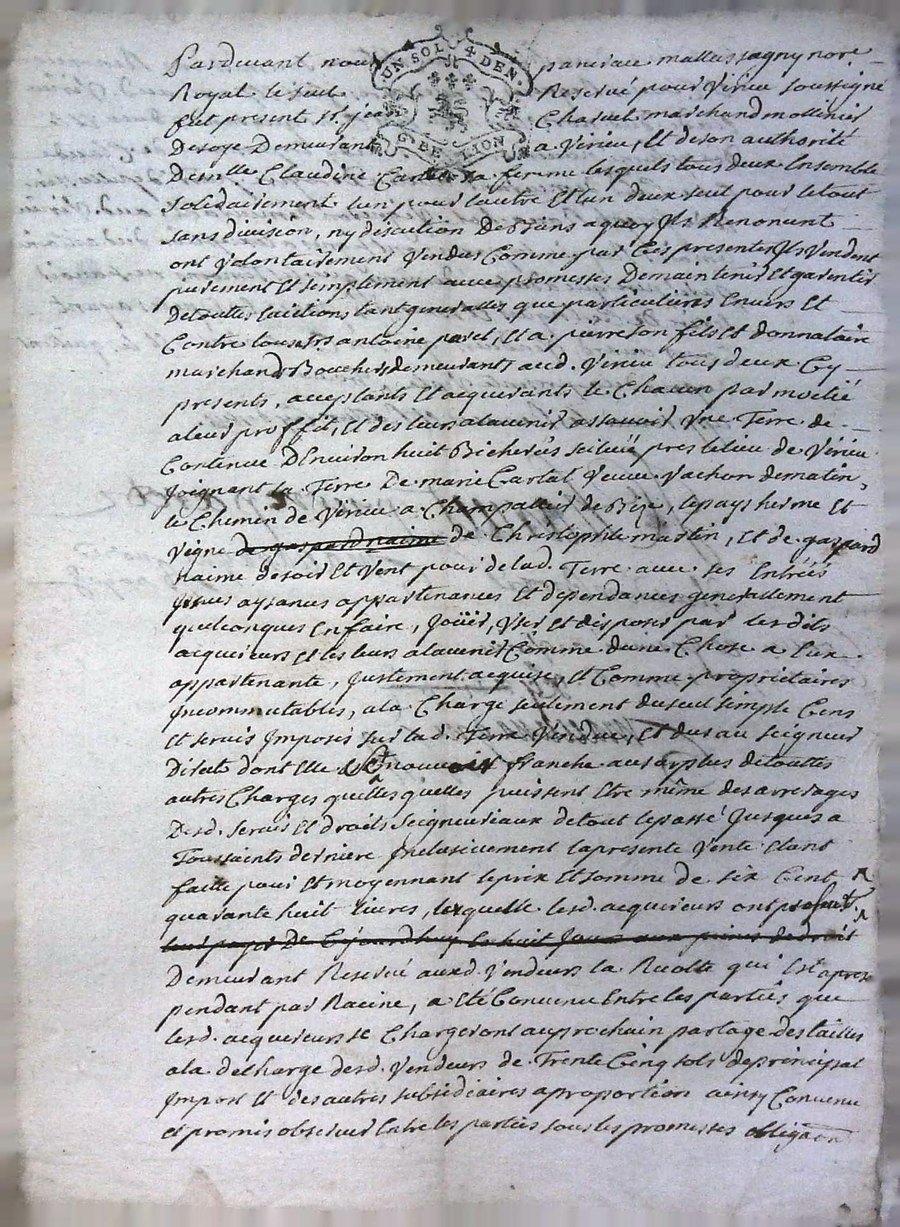 Pardevant nous
Royal le seul Reservé pour Virieu soussigné
fut present Sr. Jea Charuel marchand mollinier
UN SOL 4 DEN
GE DE LION
Desoye Demeurant a Virieu, Et deson authorité
Demlle Claudine sa femme lesquels tous deux Ensemble
solidairement lun pour lautre Et lun deux seul pour letout
sans division, ny discution De Biens aquoy Ils Renoncent
ont Volontairement Vendus Comme par Ces presentes Ils Vendent
purement Et simplement avec promesses De maintenir Et garentir
Detouttes Evictions tant generalles que particulieres Envers Et
Contre tous, srs antoine pavet, Et a pierre son fils Et donnataire
marchands Bouchers demeurants aud. Virieu tous deux Cy
presents, acceptants Et acquerants le Chacun par moetié
aleur proffit, Et des leurs alavenir assavoir Une Terre de
Contenue D'Environ huit Bicherés scituée pres le lieu de Virieu
Joignant la Terre De marie Cartal Veuve Vachon de matin,
le Chemin de Virieu a Champailler de Bize, lepasy herme Et
Vigne de gaspard naime de Christophle martin, Et de gaspard
naime de soir Et Vent pour delad. Terre avec ses Entrées
Jssues aysances appartenances Et dependances generallement
quelconques En faire, Joüir, User Et disposer par lesdits
acquereurs Et les leurs alavenir Comme dune Chose a Eux
appartenante, Justement acquise, Et Comme proprietaires
Jncommutables, ala Charge seulement du seul simple Cens
Et servis Jmposés sur lad. Terre Vendue, Et du au seigneur
Direct dont Elle se franche au surplus detouttes
autres Charges quelles quelles puissent Etre même des arrerages
Desd. servis Et droits seigneuriaux de tout lepassé Jusques a
Toussaints derniere Jnclusivement lapresente Vente Etant
faitte pour Et moyennant leprix Et somme de six Cent
quarante huit livres, laquelle lesd. acquereurs ont
De Cejourdhuy En huit Jours aux peines de droit
Demeurant Reservé auxd. Vendeurs la Recolte qui Est apres
pendant par Racine, a Eté Convenu Entre les parties que
lesd. acquereurs se Chargeront auprochain partage des tailles
ala decharge desd. Vendeurs de Trente Cinq sols deprincipal
Jmpost Et des autres subsidiaires aproportion ainsy Convenu
et promis observer Entre les parties sous les promesses obligaon